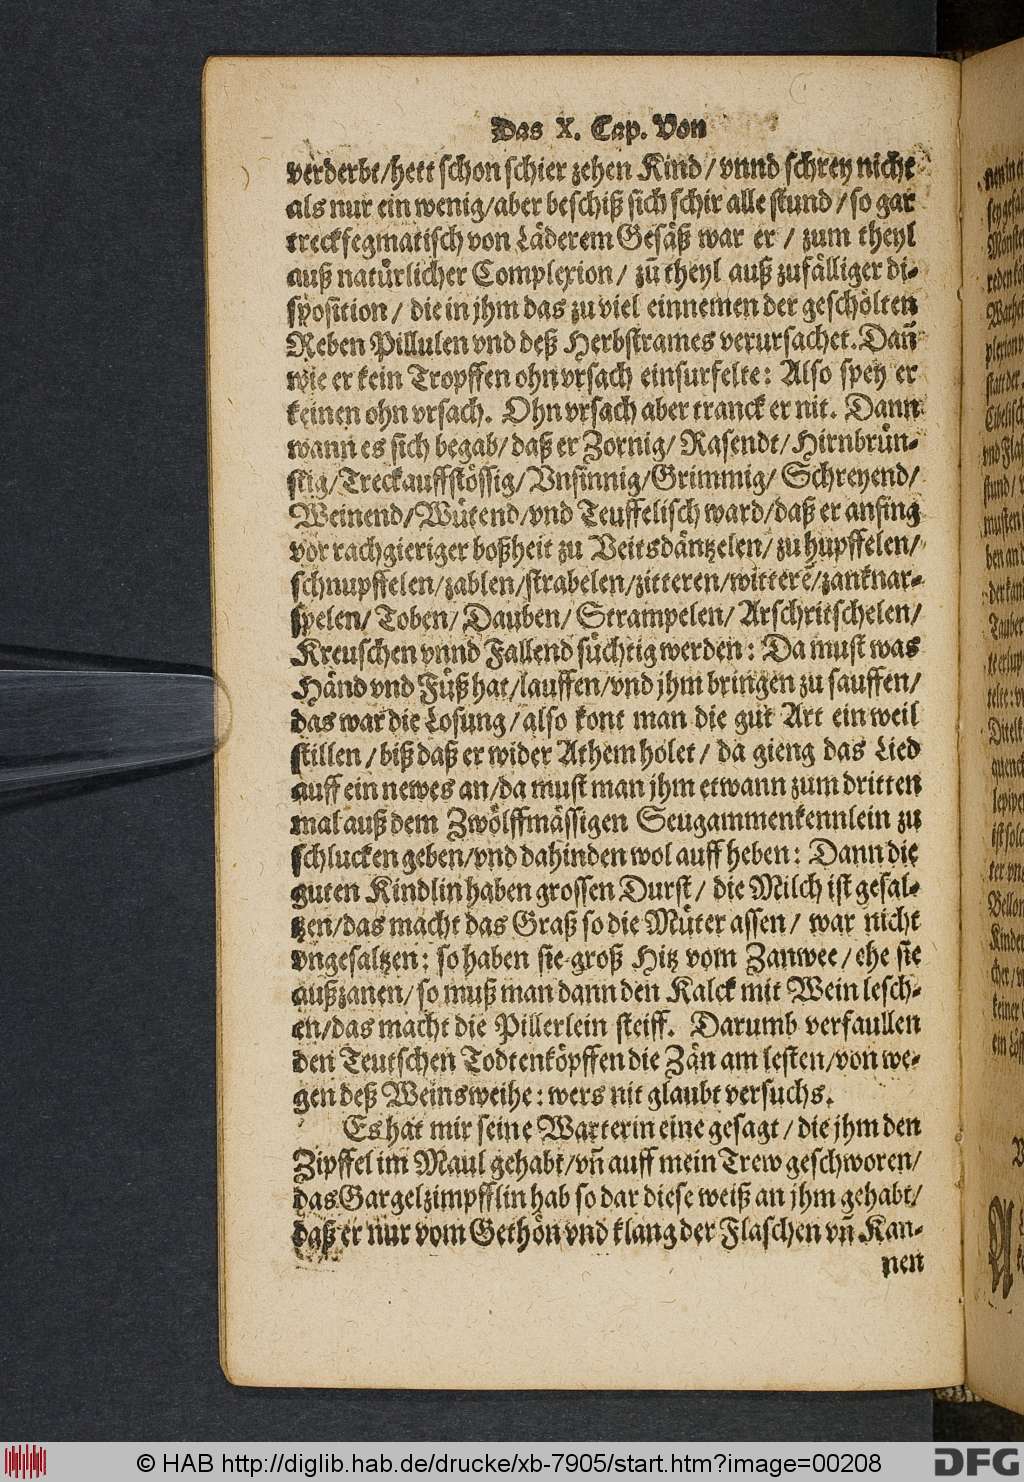 Das X. Cap. Von
verderbt/hett schon schier zehen Kind/vnnd schrey nicht
als nur ein wenig/aber beschiß sich schir alle stund/so gar
treckfegmatisch von Läderem Gesäß war er/zum theyl
auß natürlicher Complexion/zū theyl auß zufälliger di-
sposition/die in jhm das zu viel einnemen der geschölten
Reben Pillulen vnd deß Herbstrames verursachet. Dañ
wie er kein Tropffen ohn vrsach einsurfelte: Also spey er
keinen ohn vrsach. Ohn vrsach aber tranck er nit. Dann
wann es sich begab/daß er Zornig/Rasendt/Hirnbrün-
stig/Treckauffstössig/Vnsinnig/Grimmig/Schreyend/
Weinend/Wütend/vnd Teuffelisch ward/daß er anfing
vor rachgieriger boßheit zu Veitsdäntzelen/zu hupffelen/
schnupffelen/zablen/strabelen/zitteren/witterē/zanknar-
spelen/Toben/Dauben/Strampelen/Arschritschelen/
Kreuschen vnnd Fallend süchtig werden: Da must was
Händ vnd Füß hat/lauffen/vnd jhm bringen zu sauffen/
das war die Losung/also kont man die gut Art ein weil
stillen/biß daß er wider Athem holet/da gieng das Lied
auff ein newes an/da must man jhm etwann zum dritten
mal auß dem Zwölffmässigen Seugammenkennlein zu
schlucken geben/vnd dahinden wol auff heben: Dann die
guten Kindlin haben grossen Durst/die Milch ist gesal-
tzen/das macht das Graß so die Müter assen/war nicht
vngesaltzen: so haben sie groß Hitz vom Zanwee/ehe sie
außzanen/so muß man dann den Kalck mit Wein lesch-
en/das macht die Pillerlein steiff. Darumb verfaullen
den Teutschen Todtenköpffen die Zän am lesten/von we-
gen deß Weinsweihe: wers nit glaubt versuchs.
Es hat mir seine Warterin eine gesagt/die jhm den
Zipffel im Maul gehabt/vñ auff mein Trew geschworen/
das Gargelzimpfflin hab so dar diese weiß an jhm gehabt/
daß er nur vom Gethön vnd klang der Flaschen vñ Kan-
nen
© HAB http://diglib.hab.de/drucke/xb-7905/start.htm?image=00208
DFG